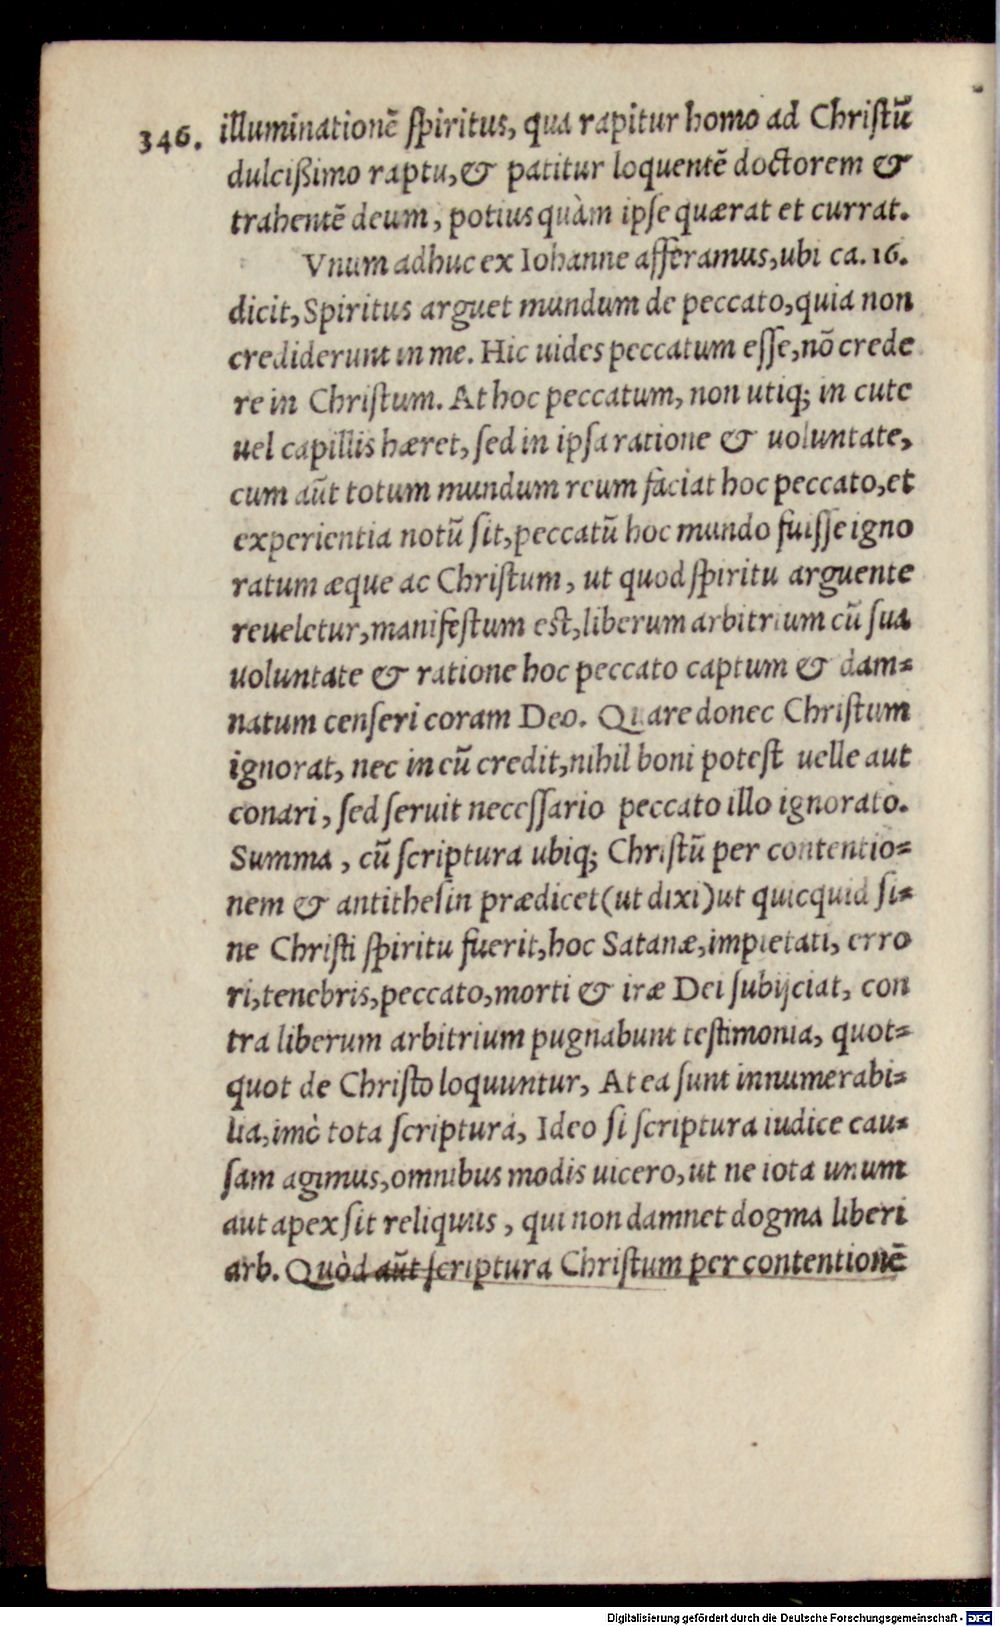 346. illuminationē spiritus, qua rapitur homo ad Christū
dulcißimo raptu, & patitur loquentē doctorem &
trahentē deum, potius quàm ipse quærat et currat.
Vnum adhuc ex Iohanne afferamus, ubi ca. 16.
dicit, Spiritus arguet mundum de peccato, quia non
crediderunt in me. Hic uides peccatum esse, nō crede
re in Christum. At hoc peccatum, non utiq; in cute
uel capillis hæret, sed in ipsa ratione & uoluntate,
cum aūt totum mundum reum faciat hoc peccato, et
experientia notū sit, peccatū hoc mundo fuisse igno
ratum æque ac Christum, ut quod spiritu arguente
reueletur, manifestum est, liberum arbitrium cū sua
uoluntate & ratione hoc peccato captum & dam=
natum censeri coram Deo. Quare donec Christum
ignorat, nec in eū credit, nihil boni potest uelle aut
conari, sed seruit necessario peccato illo ignorato.
Summa, cū scriptura ubiq; Christū per contentio=
nem & antithesin prædicet (ut dixi) ut quicquid si=
ne Christi spiritu fuerit, hoc Satanæ, impietati, erro
ri, tenebris, peccato, morti & iræ Dei subijciat, con
tra liberum arbitrium pugnabunt testimonia, quot=
quot de Christo loquuntur, At ea sunt innumerabi=
lia, imò tota scriptura, Ideo si scriptura iudice cau=
sam agimus, omnibus modis uicero, ut ne iota unum
aut apex sit reliquus, qui non damnet dogma liberi
arb. Quòd aūt scriptura Christum per contentionē
Digitalisierung gefördert durch die Deutsche Forschungsgemeinschaft - DFG